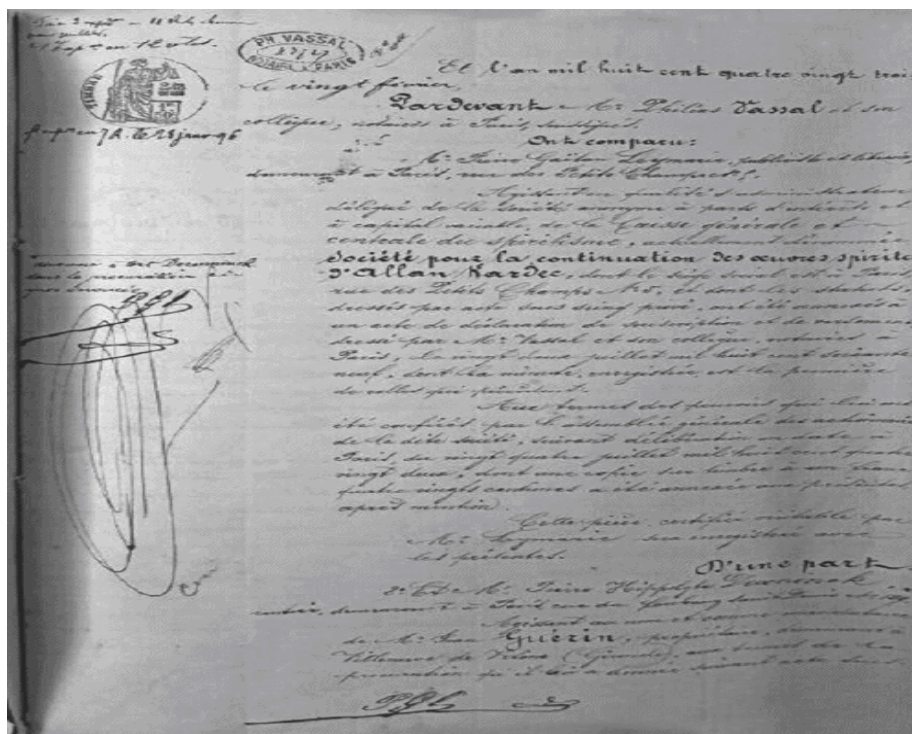 PH VASSAL
NOTAIRE A PARIS
TIMBRE
Et l'an mil huit cent quatre vingt trois
le vingt février,
Pardevant Me Vassal et son
collègue, notaires à Paris, soussignés.
Ont comparu:
Mr Pierre Gaëtan Leymarie, publiciste et libraire,
demeurant à Paris, rue des Petits Champs No 5.
Agissant en qualité d'administrateur
délégué de la Société anonyme à parts d'intérêts et
à capital variable de la Caisse générale et
centrale du spiritisme, actuellement dénommée
Société pour la continuation des œuvres spirites
d'Allan Kardec, dont le siège social est à Paris,
rue des Petits Champs No 5, et dont les statuts,
dressés par acte sous seing privé, ont été annexés à
un acte de déclaration de souscription et de versement
dressé par Me Vassal et son collègue, notaires à
Paris, le vingt deux juillet mil huit cent soixante
neuf, dont la minute, enregistrée, est la première
de celles qui précèdent.
Aux termes des pouvoirs qui lui ont
été conférés par l'assemblée générale des actionnaires
de la dite société, suivant délibération en date à
Paris, du vingt quatre juillet mil huit cent quatre
vingt deux, dont une copie sur timbre à un franc
quatre vingts centimes a été annexée aux présentes
après mention.
Cette pièce certifiée véritable par
Mr Leymarie sera enregistrée avec
les présentes.
D'une part
2° Et Mr Pierre Hippolyte
demeurant à Paris rue du faubourg Saint Denis
Agissant au nom et comme mandataire
de Mr Jean Guérin, propriétaire, demeurant à
Villeneuve de (Gironde), en vertu de la
procuration qu'il lui a donnée suivant acte